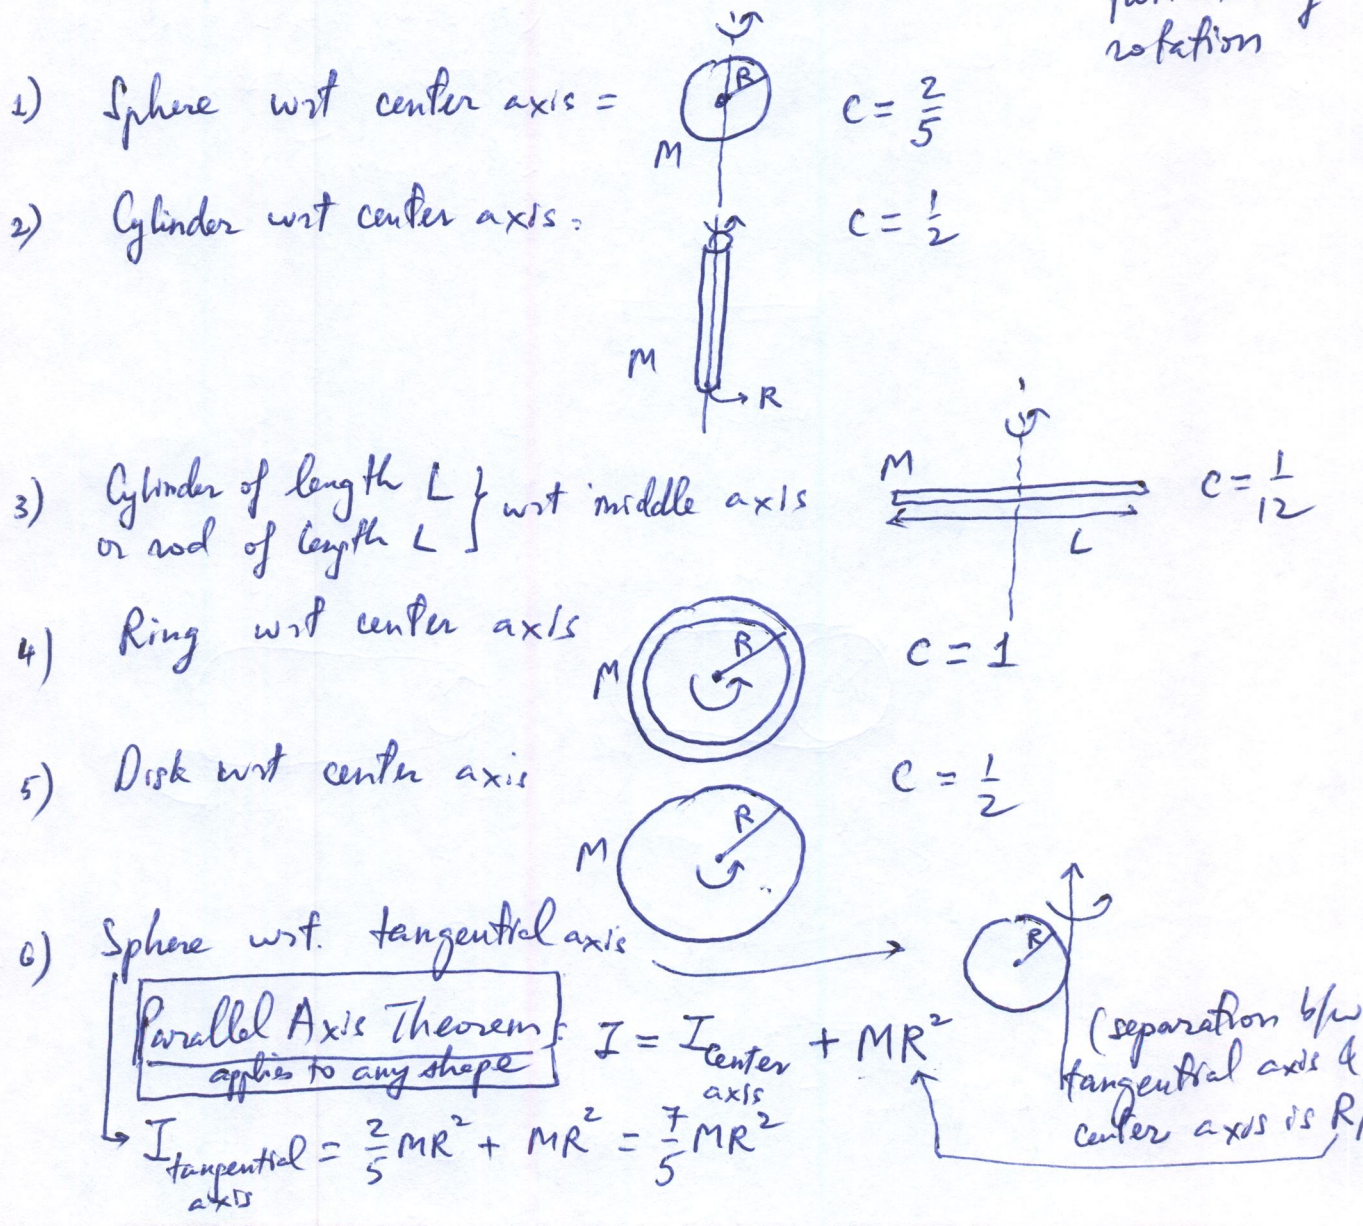 rotation
1) Sphere wrt center axis = R M C = 2/5
2) Cylinder wrt center axis: C = 1/2
M R
3) Cylinder of length L } wrt middle axis M L C = 1/12
or rod of length L
4) Ring wrt center axis M R C = 1
5) Disk wrt center axis M R C = 1/2
6) Sphere wrt. tangential axis R
Parallel Axis Theorem : I = I center axis + MR²
applies to any shape
(separation b/w
tangential axis &
center axis is R)
I tangential axis = 2/5 MR² + MR² = 7/5 MR²